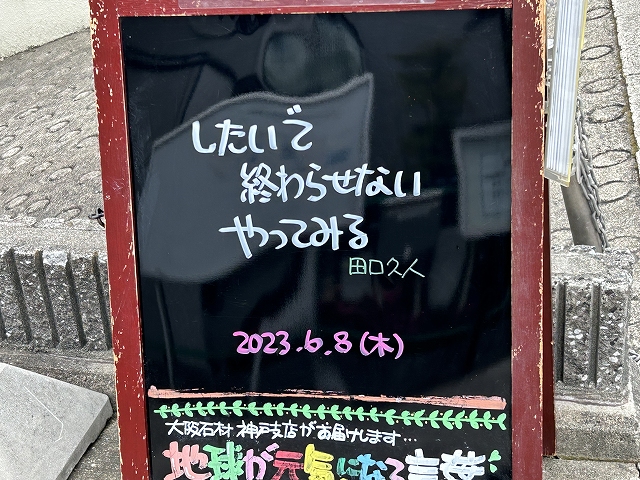 したいで
終わらせない
やってみる
田口久人
2023.6.8(木)
大阪石材 神戸支店がお届けします...
地球が元気になる言葉